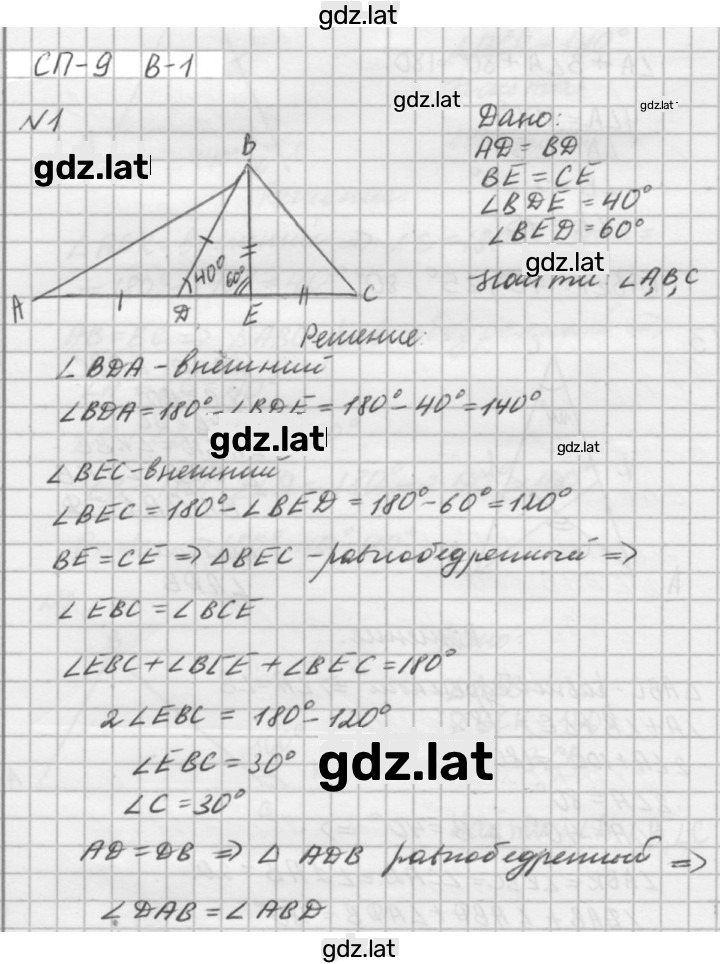 gdz.lat
СП-9 В-1
gdz.lat
gdz.lat
№1
Дано:
AD = BD
gdz.lat
BE = CE
∠BDE = 40°
∠BED = 60°
gdz.lat
Найти: ∠A,B,C
B
40°
60°
A
D
E
C
Решение:
∠BDA - внешний
∠BDA = 180° - ∠BDE = 180° - 40° = 140°
gdz.lat
gdz.lat
∠BEC - внешний
∠BEC = 180° - ∠BED = 180° - 60° = 120°
BE = CE => △BEC - равнобедренный =>
∠EBC = ∠BCE
∠EBC + ∠BCE + ∠BEC = 180°
2∠EBC = 180° - 120°
∠EBC = 30°
gdz.lat
∠C = 30°
AD = DB => △ ADB равнобедренный =>
∠DAB = ∠ABD
gdz.lat